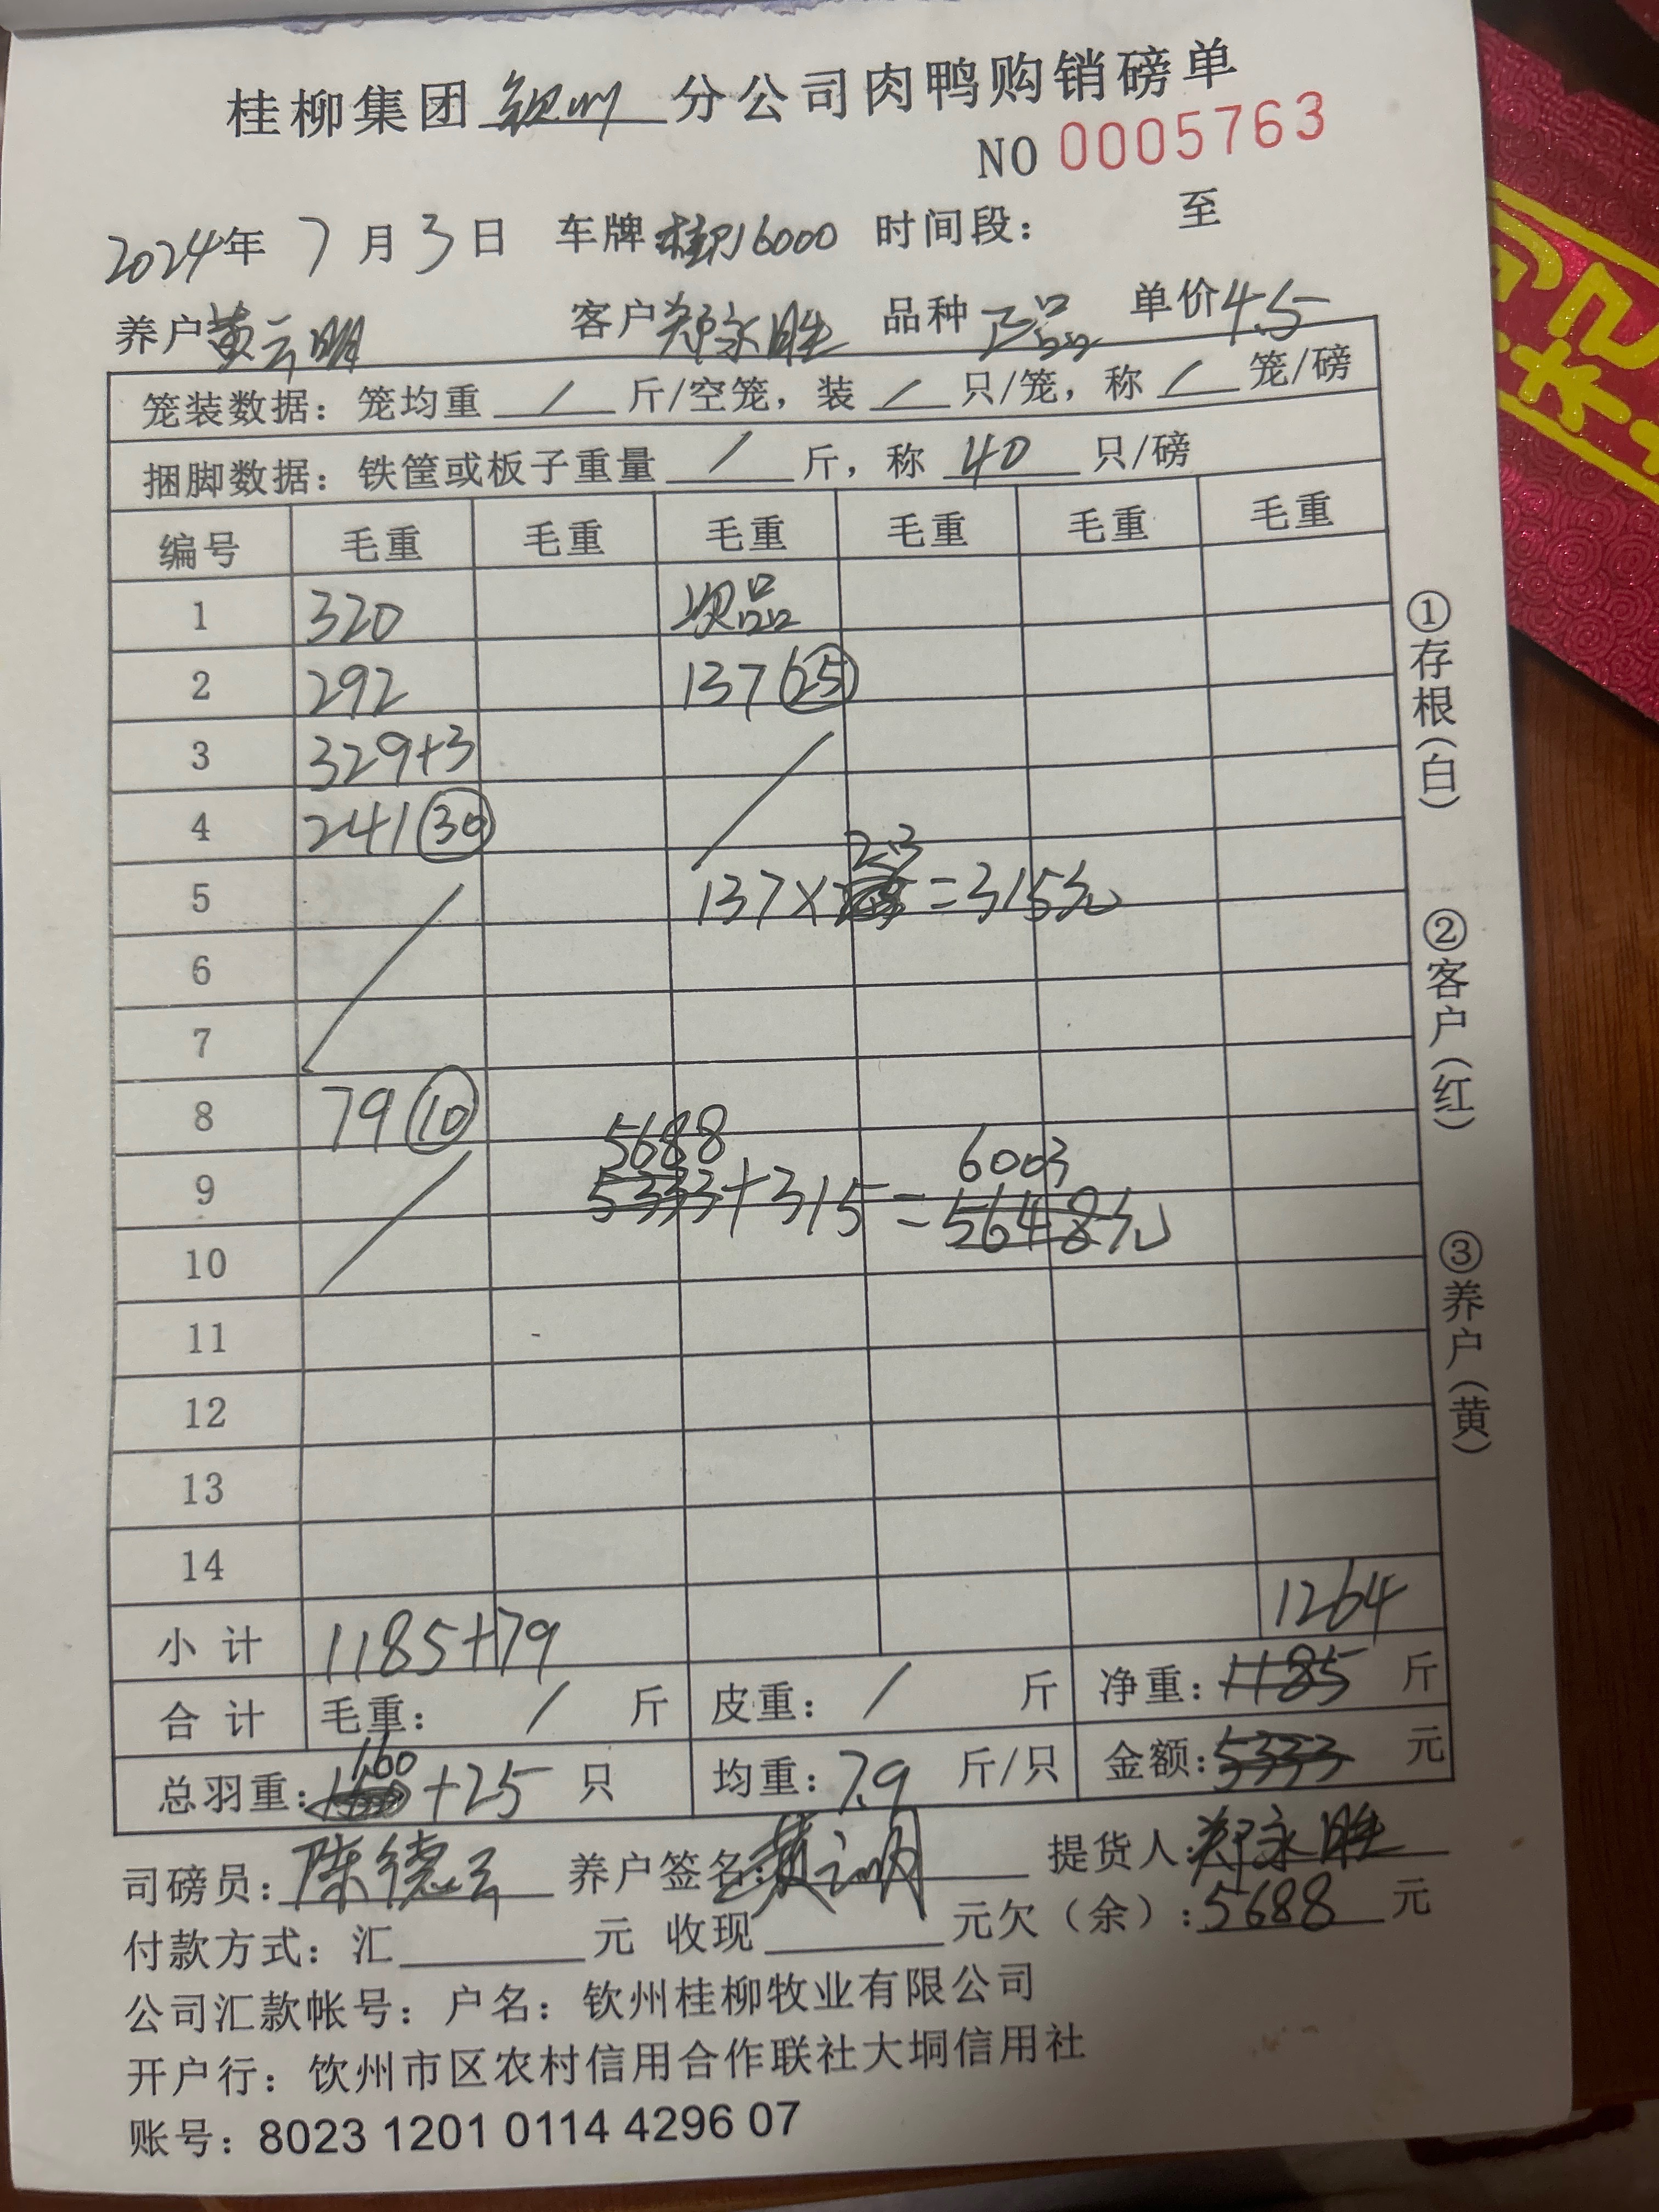 桂柳集团钦州分公司肉鸭购销磅单
NO 0005763
2024年 7月3日 车牌: 16000 时间段: 至
养户黄云明 客户郑永胜 品种正品 单价4.5
笼装数据: 笼均重 / 斤/空笼, 装 / 只/笼, 称 / 笼/磅
捆脚数据: 铁筐或板子重量 / 斤, 称 40 只/磅
编号 毛重 毛重 毛重 毛重 毛重 毛重
1 320 次品
2 292 137 (25)
3 329+3
4 241 (30)
2.3
5 137× =315元
6
7
8 79 (10)
5688 6003
9 5333+315=5648元
10
11
12
13
14
1264
小计 1185+79
合计 毛重: / 斤 皮重: / 斤 净重: 1185 斤
160
总羽重: +25 只 均重: 7.9 斤/只 金额: 5333 元
司磅员: 陈德云 养户签名: 黄云明 提货人: 郑永胜
付款方式: 汇 元 收现 元欠(余): 5688 元
公司汇款帐号: 户名: 钦州桂柳牧业有限公司
开户行: 钦州市区农村信用合作联社大垌信用社
账号: 8023 1201 0114 4296 07
①存根(白)
②客户(红)
③养户(黄)